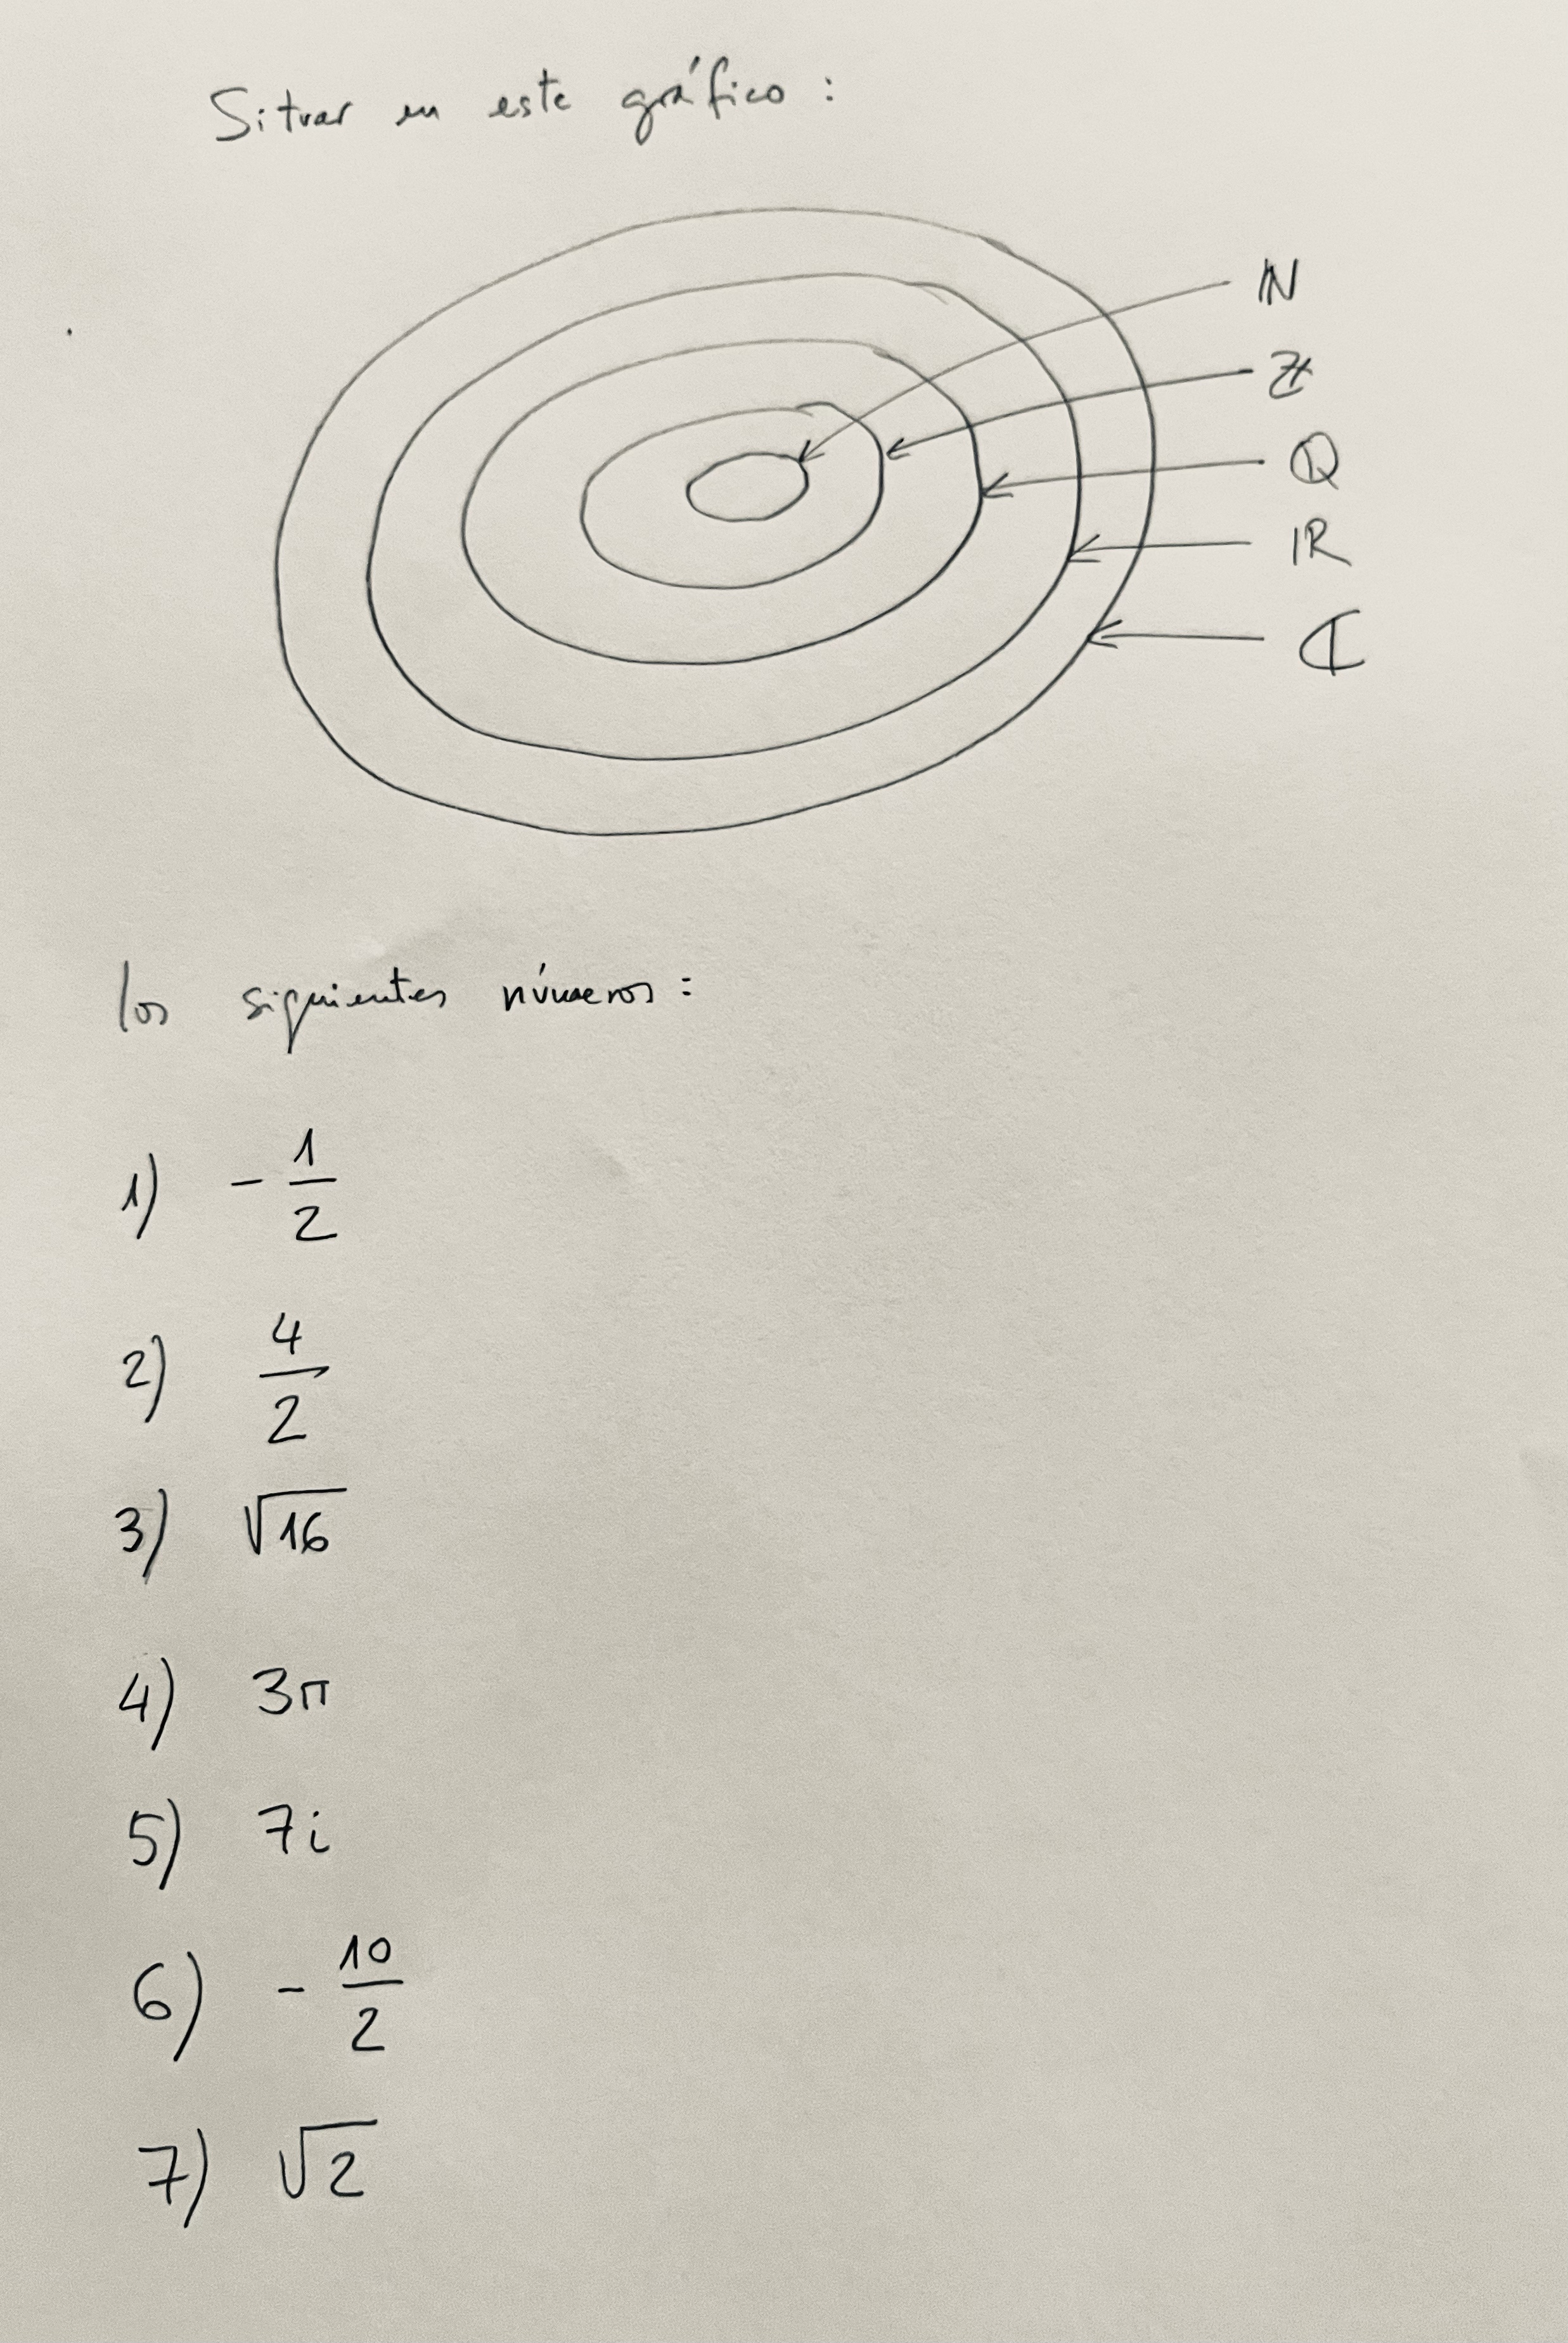 Situar en este gráfico :
ℕ
ℤ
ℚ
ℝ
ℂ
los siguientes números :
1) - 1/2
2) 4/2
3) √16
4) 3π
5) 7i
6) - 10/2
7) √2